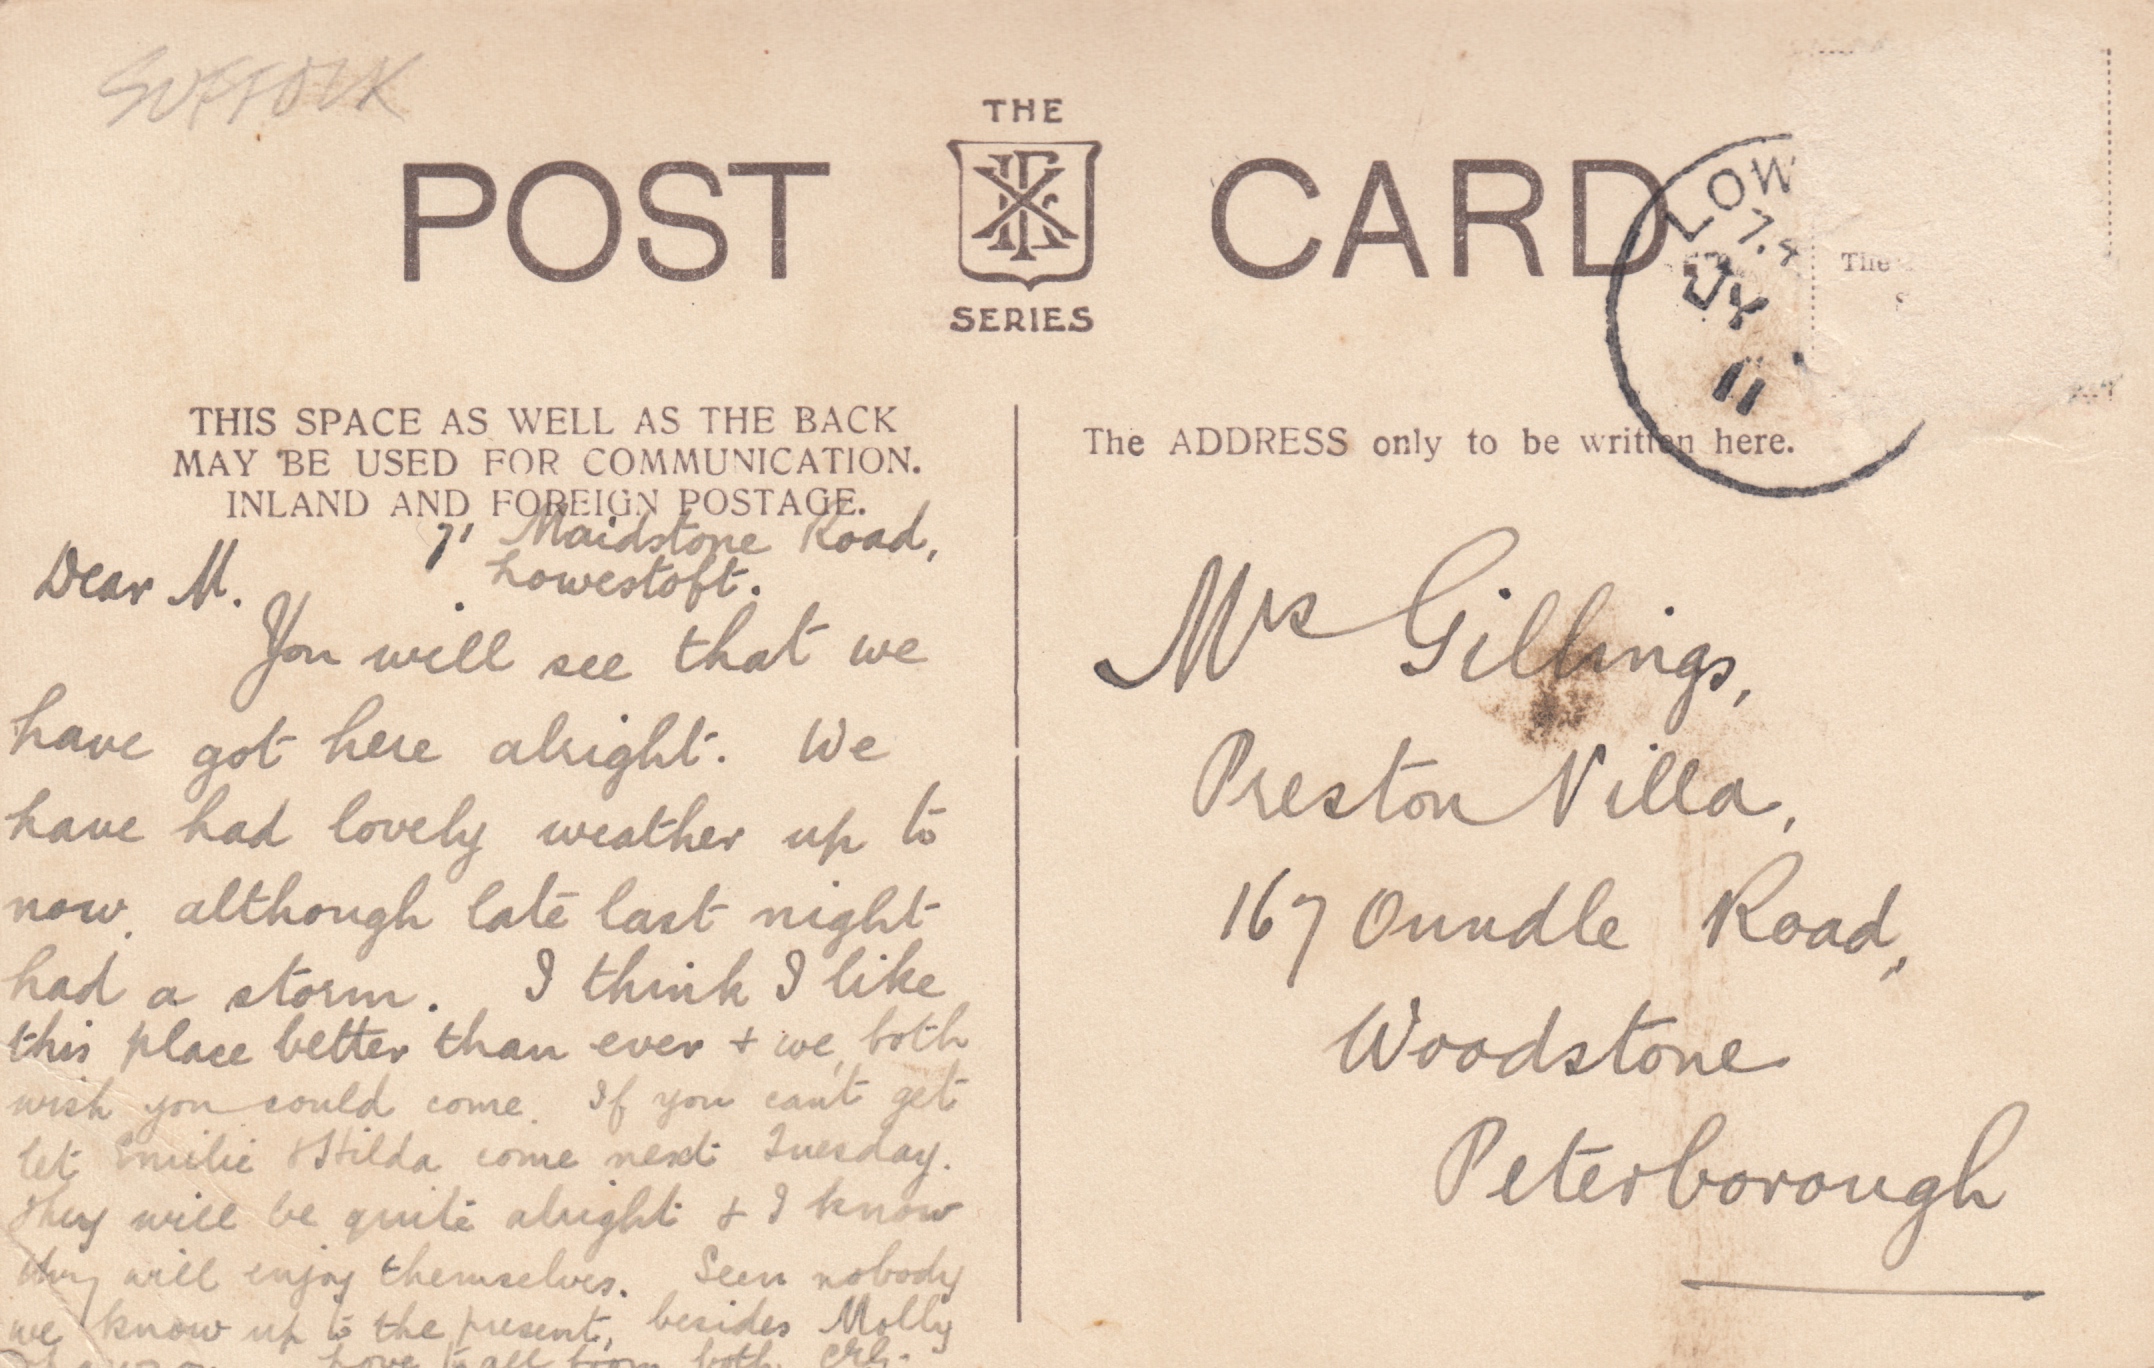 SUFFOLK
THE
POST CARD
SERIES
LOW
7.
JY
11
The
THIS SPACE AS WELL AS THE BACK
MAY BE USED FOR COMMUNICATION.
INLAND AND FOREIGN POSTAGE.
The ADDRESS only to be written here.
71 Maidstone Road,
Lowestoft.
Dear M.
You will see that we
have got here alright. We
have had lovely weather up to
now, although late last night
had a storm. I think I like
this place better than ever + we both
wish you could come. If you can't get
let Emilie & Hilda come next Tuesday.
They will be quite alright & I know
they will enjoy themselves. Seen nobody
we know up to the present, besides Molly
Love to all from both.
Mrs Gillings,
Preston Villa,
167 Oundle Road,
Woodstone
Peterborough